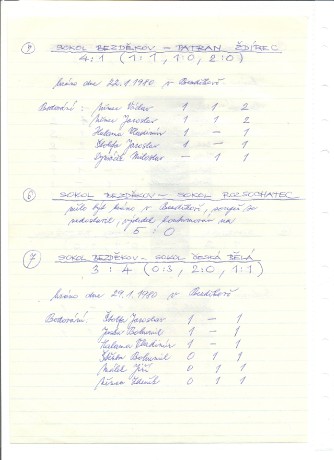 SOKOL BEZDĚKOV – TATRAN ŽDÍREC
4:1 (1:1, 1:0, 2:0)
hráno dne 22.1.1980 v
Bodování: Václav 1 1 2
Jaroslav 1 1 2
Halama Vladimír 1 – 1
Jaroslav 1 – 1
Miloslav – 1 1
6 SOKOL BEZDĚKOV – SOKOL ROZSOCHATEC
mělo být hráno v soupeř se
nedostavil, výsledek kontumován na
5:0
7 SOKOL BEZDĚKOV – SOKOL ČESKÁ BĚLÁ
3:4 (0:3, 2:0, 1:1)
hráno dne 29.1.1980 v
Bodování: Jaroslav 1 – 1
Bohumil 1 – 1
Halama Vladimír 1 – 1
Bohumil 0 1 1
Jiří 0 1 1
Zdeněk 0 1 1